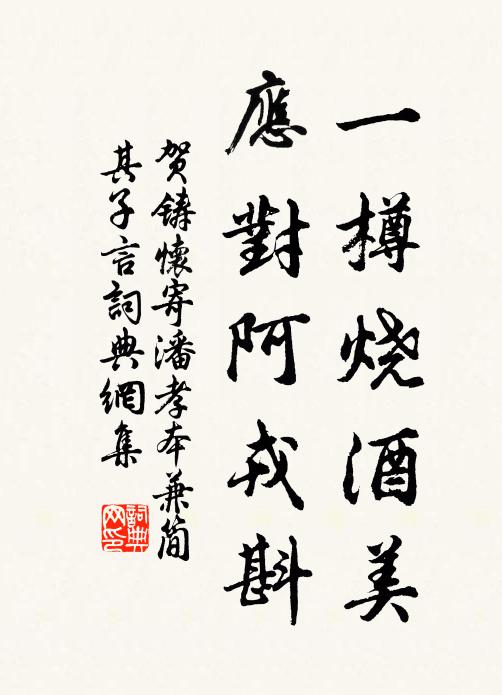 一樽烧酒美
應對阿戎斟
賀鑄懷寄潘孝本兼簡
其子言詞典網集
詞典网印